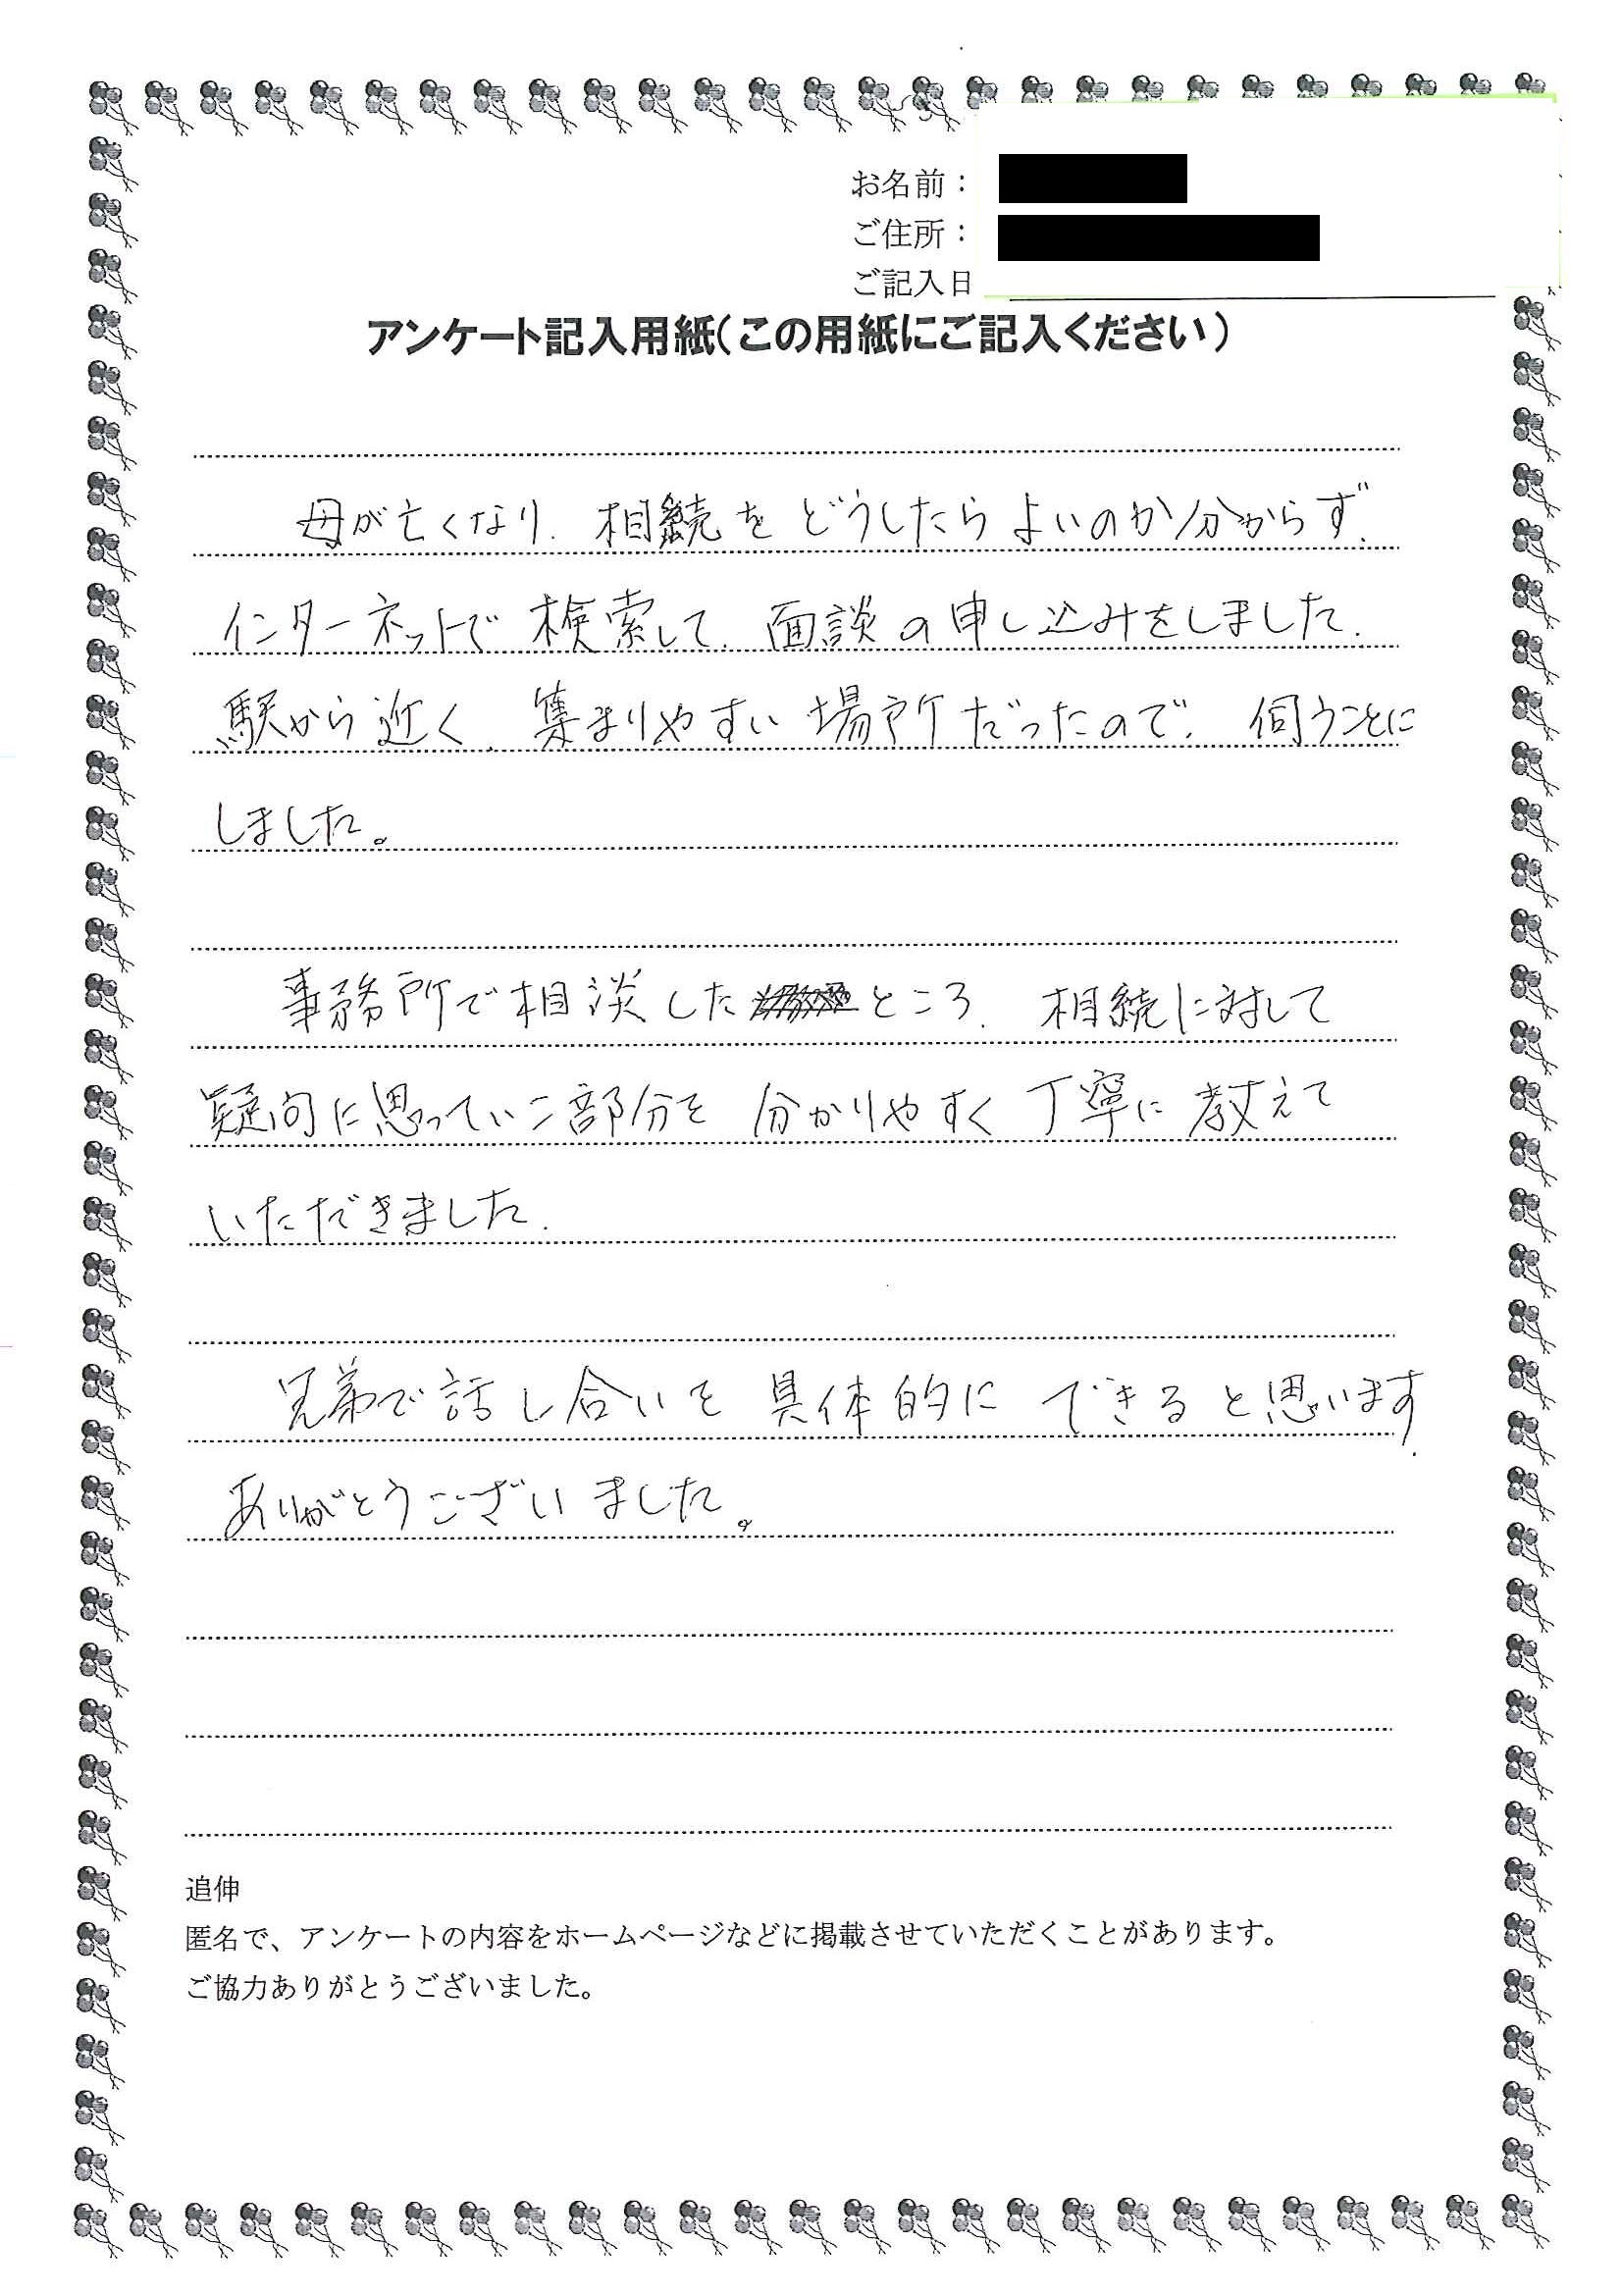 お名前：
ご住所：
ご記入日
アンケート記入用紙（この用紙にご記入ください）
母が亡くなり、相続をどうしたらよいのか分からず、
インターネットで検索して、面談の申し込みをしました。
駅から近く、集まりやすい場所だったので、伺うことに
しました。
事務所で相談したところ、相続に対して
疑問に思っていた部分を分かりやすく丁寧に教えて
いただきました。
兄弟で話し合いを具体的にできると思います。
ありがとうございました。
追伸
匿名で、アンケートの内容をホームページなどに掲載させていただくことがあります。
ご協力ありがとうございました。